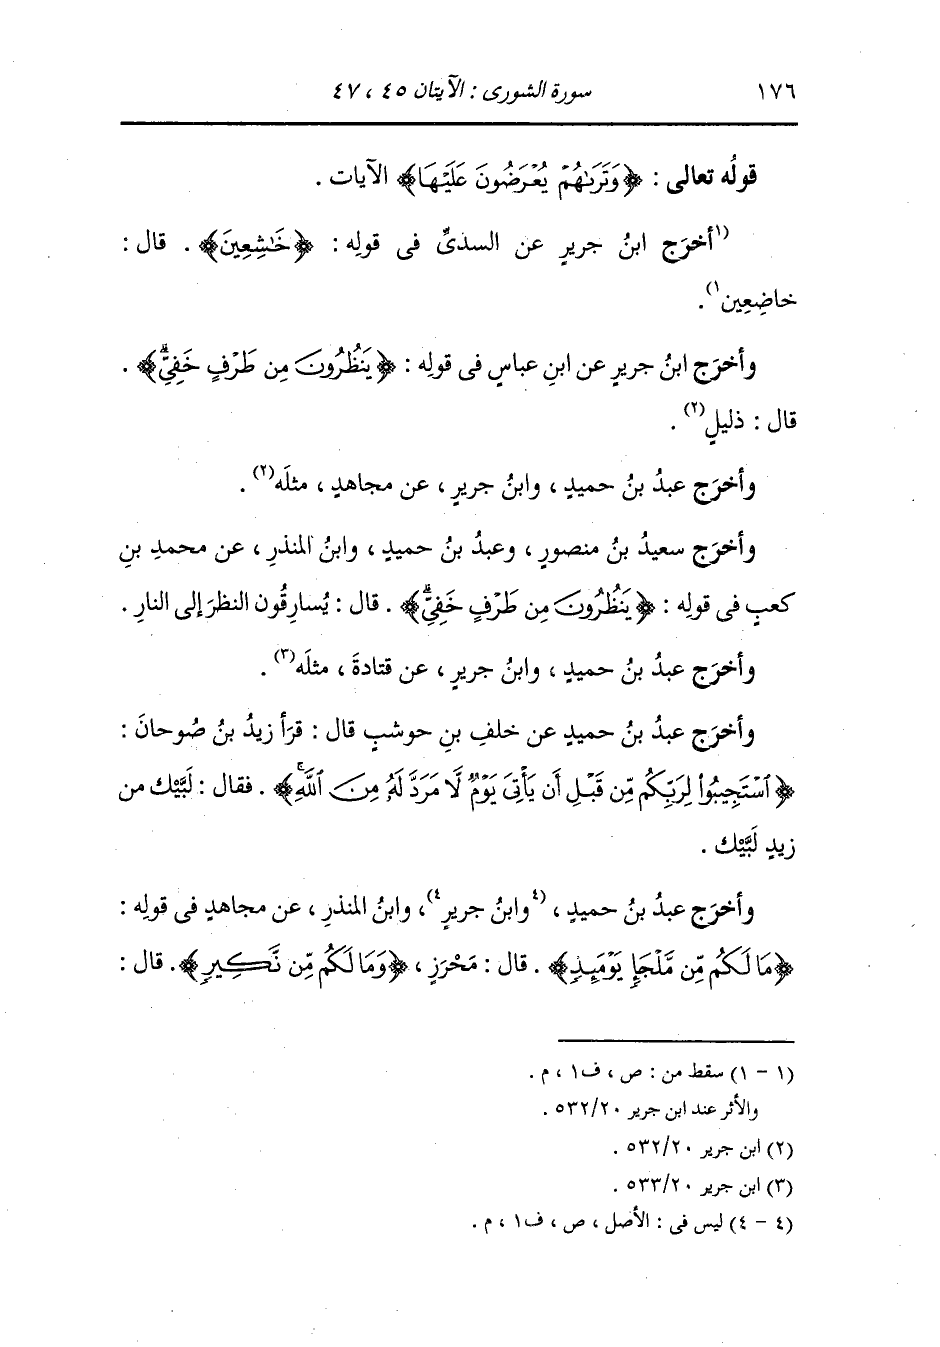 ١٧٦ سورة الشورى : الآيتان ٤٥ ، ٤٧
قولُه تعالى : ﴿وَتَرَىٰهُمْ يُعْرَضُونَ عَلَيْهَا﴾ الآيات .
(١أخرَج ابنُ جريرٍ عن السدىِّ فى قولِه : ﴿خَٰشِعِينَ﴾ . قال :
خاضِعِين١) .
وأخرَج ابنُ جريرٍ عن ابنِ عباسٍ فى قولِه : ﴿يَنظُرُونَ مِن طَرْفٍ خَفِىٍّۗ﴾ .
قال : ذليلٍ(٢) .
وأخرَج عبدُ بنُ حميدٍ ، وابنُ جريرٍ ، عن مجاهدٍ ، مثلَه(٢) .
وأخرَج سعيدُ بنُ منصورٍ ، وعبدُ بنُ حميدٍ ، وابنُ المنذرِ ، عن محمدِ بنِ
كعبٍ فى قولِه : ﴿يَنظُرُونَ مِن طَرْفٍ خَفِىٍّۗ﴾ . قال : يُسارِقُون النظرَ إلى النارِ .
وأخرَج عبدُ بنُ حميدٍ ، وابنُ جريرٍ ، عن قتادةَ ، مثلَه(٣) .
وأخرَج عبدُ بنُ حميدٍ عن خلفِ بنِ حوشبٍ قال : قرَأ زيدُ بنُ صُوحانَ :
﴿ٱسْتَجِيبُوا۟ لِرَبِّكُم مِّن قَبْلِ أَن يَأْتِىَ يَوْمٌ لَّا مَرَدَّ لَهُۥ مِنَ ٱللَّهِۚ﴾ . فقال : لَبَّيْك من
زيدٍ لَبَّيْك .
وأخرَج عبدُ بنُ حميدٍ ، (٤وابنُ جريرٍ٤) ، وابنُ المنذرِ ، عن مجاهدٍ فى قولِه :
﴿مَا لَكُم مِّن مَّلْجَإٍ يَوْمَئِذٍ﴾ . قال : مَحْرَزٍ ، ﴿وَمَا لَكُم مِّن نَّكِيرٍ﴾ . قال :
(١ - ١) سقط من : ص ، ف١ ، م .
والأثر عند ابن جرير ٥٣٢/٢٠ .
(٢) ابن جرير ٥٣٢/٢٠ .
(٣) ابن جرير ٥٣٣/٢٠ .
(٤ - ٤) ليس فى : الأصل ، ص ، ف١ ، م .